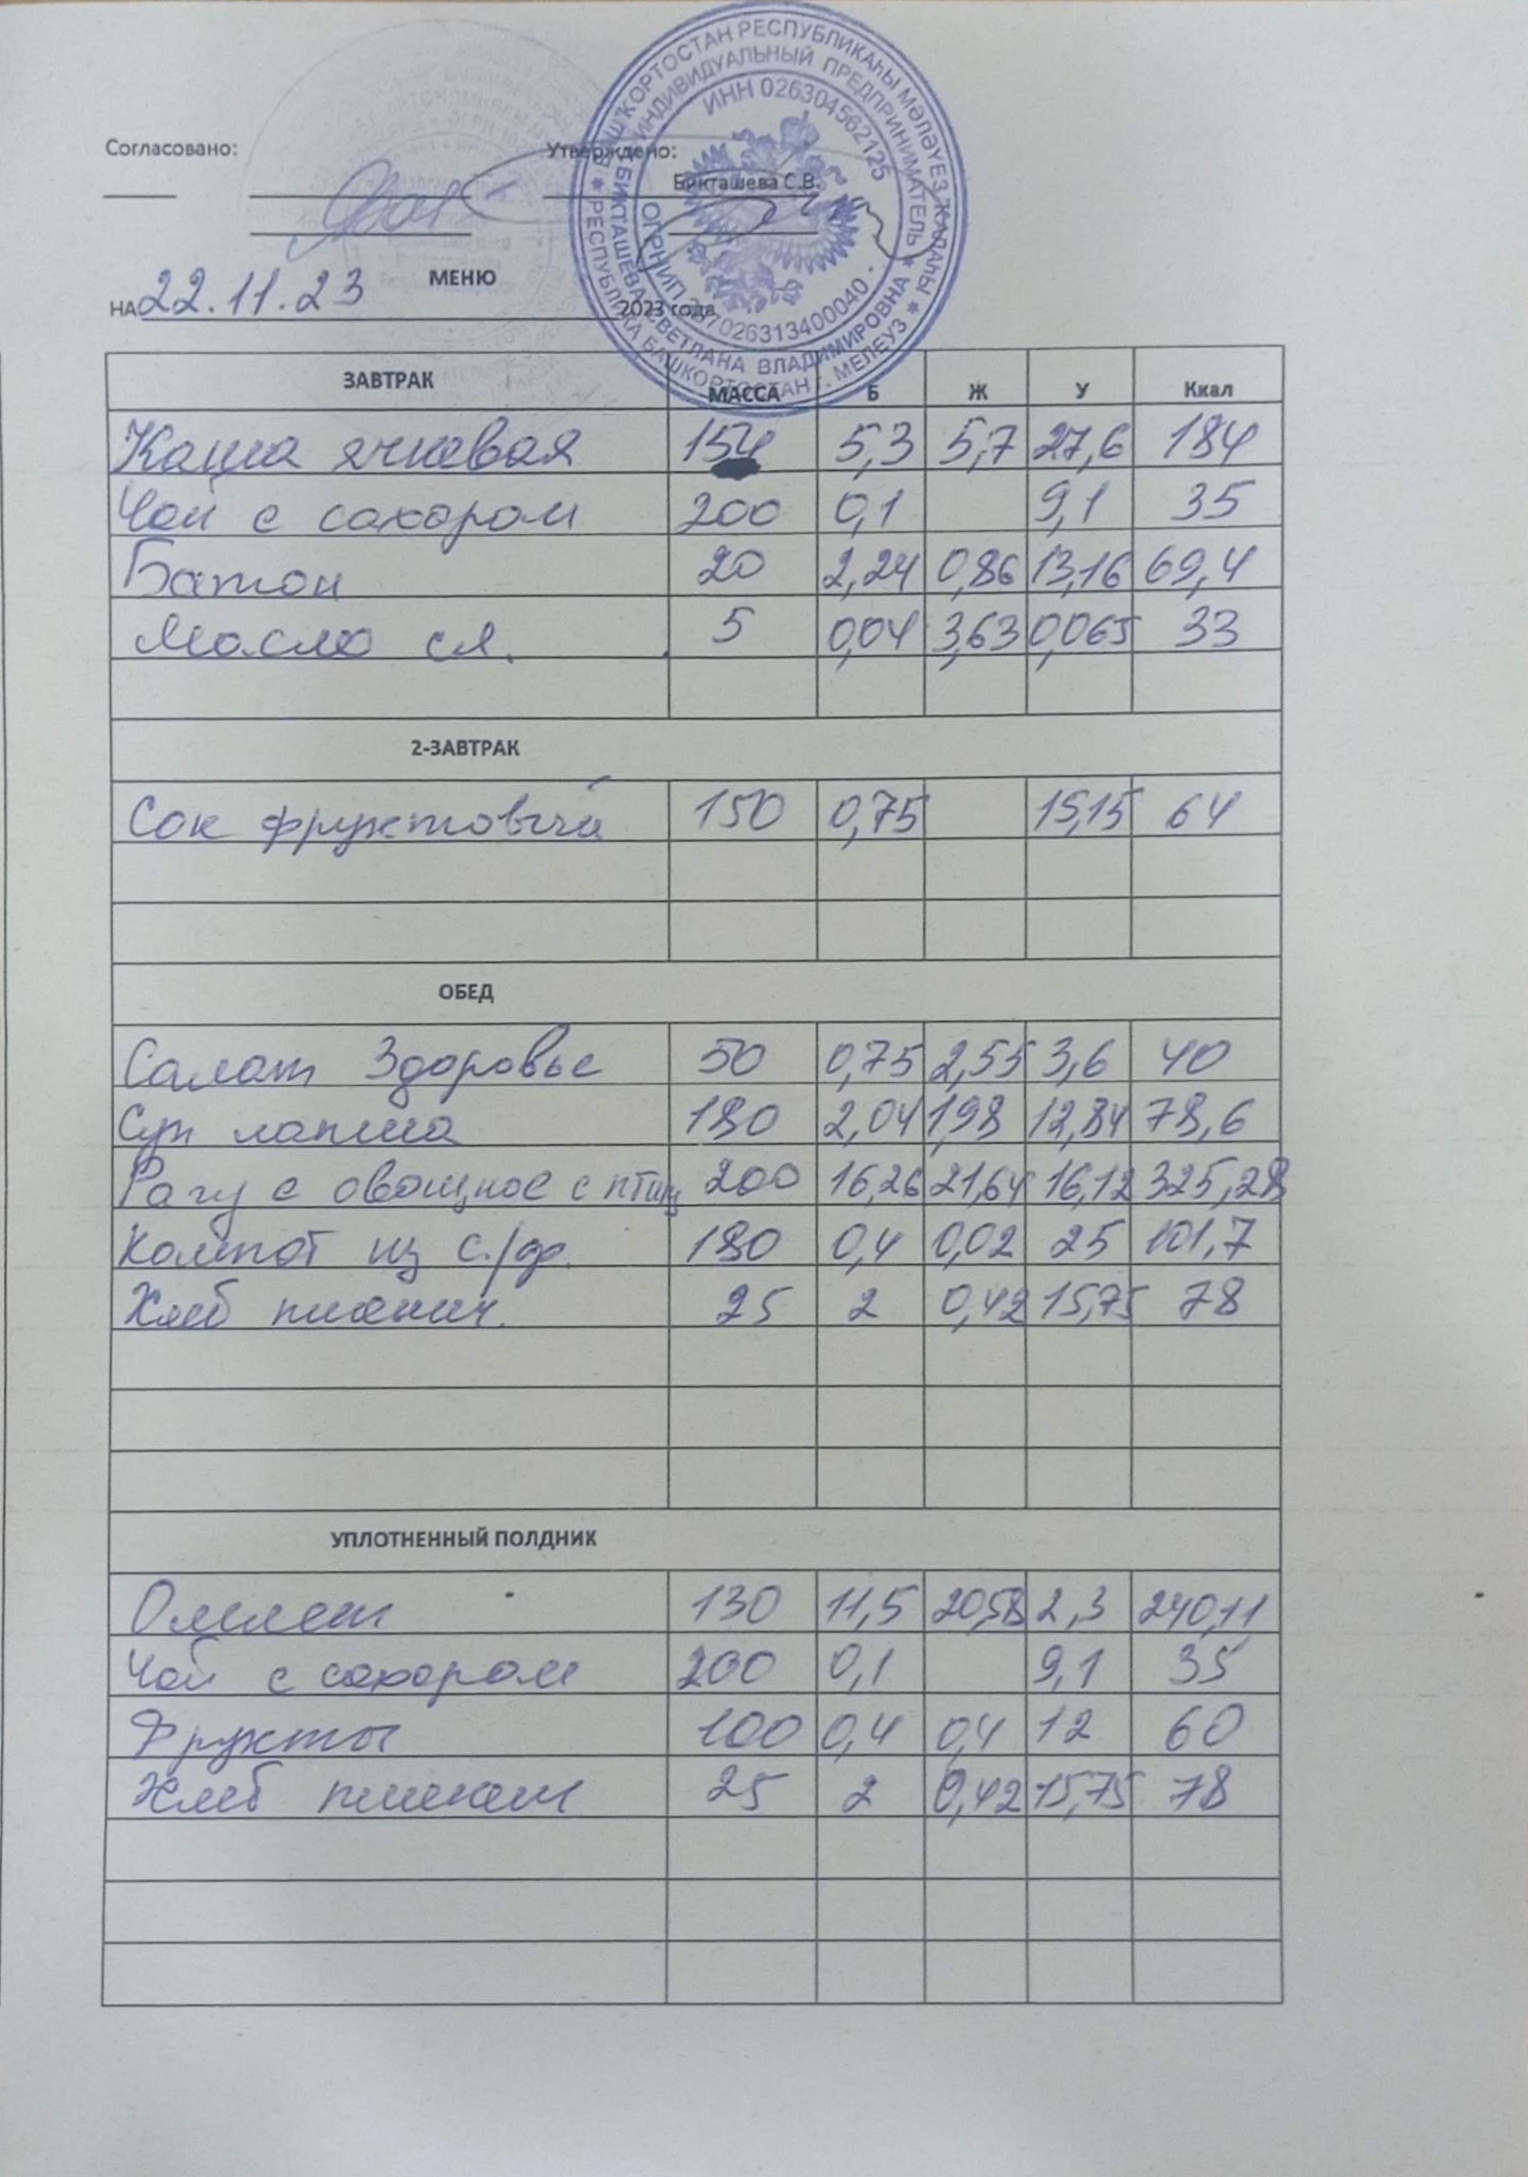 Согласовано:
Утверждено:
Бикташева С.В.
БАШҠОРТОСТАН РЕСПУБЛИКАҺЫ МӘЛӘҮЕЗ ҠАЛАҺЫ
РЕСПУБЛИКА БАШКОРТОСТАН Г. МЕЛЕУЗ
ИНДИВИДУАЛЬНЫЙ ПРЕДПРИНИМАТЕЛЬ
БИКТАШЕВА СВЕТЛАНА ВЛАДИМИРОВНА
ИНН 026304562125
ОГРНИП
МЕНЮ
НА 22.11.23 2023 года
ЗАВТРАК МАССА Б Ж У Ккал
Каша ячневая 154 5,3 5,7 27,6 184
Чай с сахаром 200 0,1 9,1 35
Батон 20 2,24 0,86 13,16 69,4
Масло сл. 5 0,04 3,63 0,065 33
2-ЗАВТРАК
Сок фруктовый 150 0,75 15,15 64
ОБЕД
Салат Здоровье 50 0,75 2,55 3,6 40
Суп лапша 180 2,04 1,98 12,84 78,6
Рагу с овощное с птиц 200 16,26 21,64 16,12 325,28
Компот из с/ф. 180 0,4 0,02 25 101,7
Хлеб пшенич. 25 2 0,42 15,75 78
УПЛОТНЕННЫЙ ПОЛДНИК
Омлет 130 11,5 20,58 2,3 240,11
Чай с сахаром 200 0,1 9,1 35
Фрукты 100 0,4 0,4 12 60
Хлеб 25 2 0,42 15,75 78